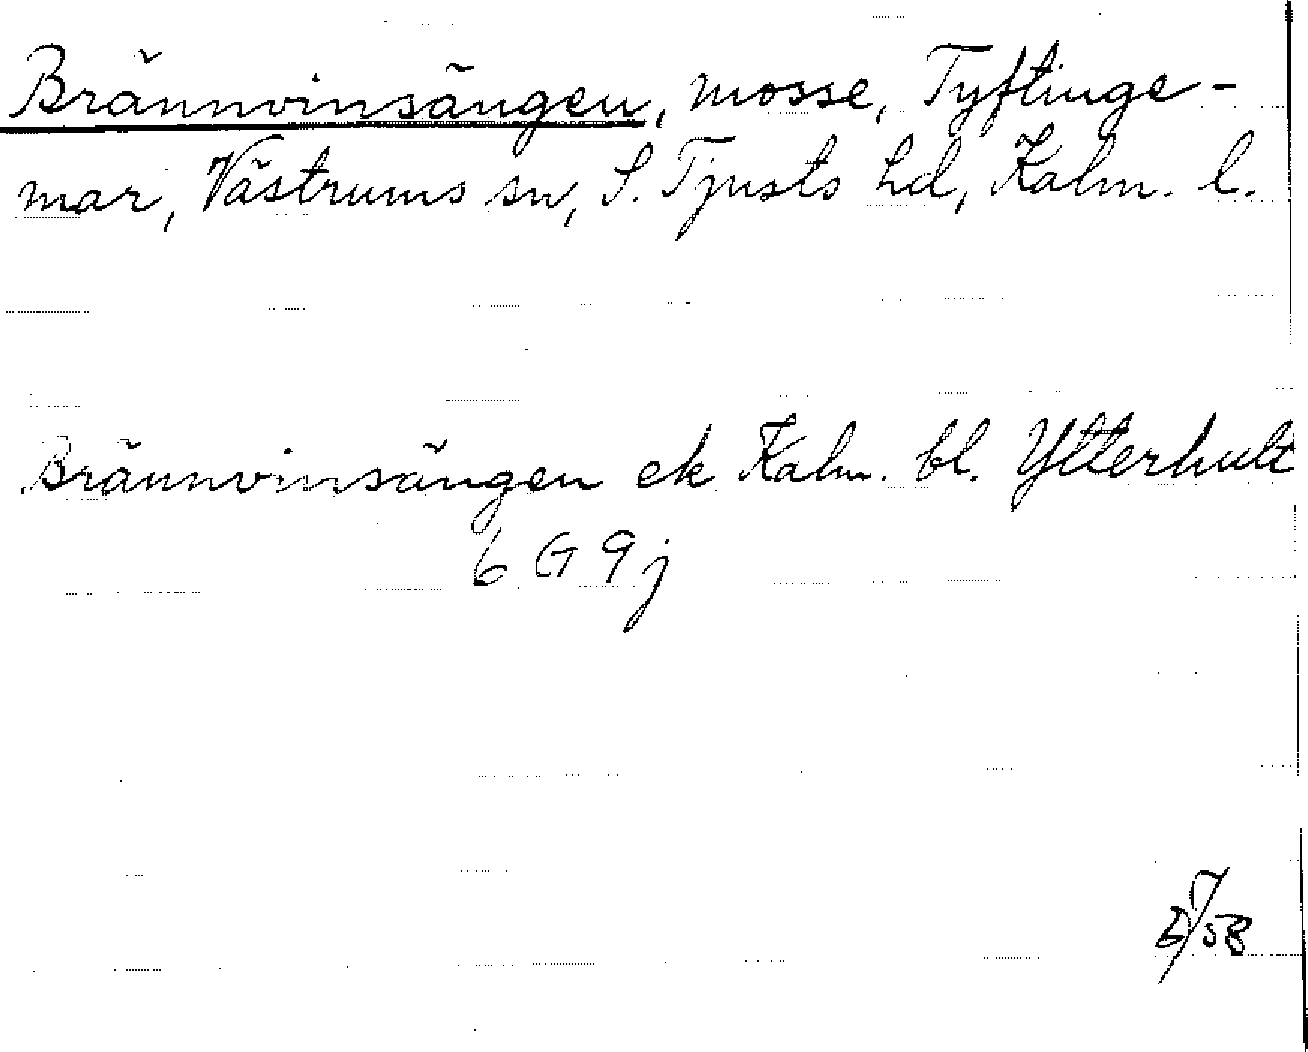 Brännvinsängen, mosse, Tyftinge-
mar, Västrums sn, S. Tjusts hd, Kalm. l.
Brännvinsängen ek Kalm. bl. Ytterhult
6 G 9 j